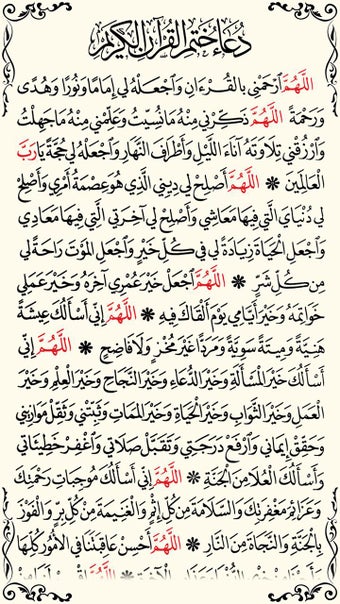 دُعَاءُ خَتْمِ الْقُرْآنِ الْكَرِيمِ
اللَّهُمَّ ارْحَمْنِي بالْقُرْءَانِ وَاجْعَلْهُ لِي إِمَامًا وَنُورًا وَهُدًى
وَرَحْمَةً اللَّهُمَّ ذَكِّرْنِي مِنْهُ مَا نُسِّيتُ وَعَلِّمْنِي مِنْهُ مَا جَهِلْتُ
وَارْزُقْنِي تِلَاوَتَهُ آنَاءَ اللَّيْلِ وَأَطْرَافَ النَّهَارِ وَاجْعَلْهُ لِي حُجَّةً يَا رَبَّ
الْعَالَمِينَ ❋ اللَّهُمَّ أَصْلِحْ لِي دِينِي الَّذِي هُوَ عِصْمَةُ أَمْرِي وَأَصْلِحْ
لِي دُنْيَايَ الَّتِي فِيهَا مَعَاشِي وَأَصْلِحْ لِي آخِرَتِي الَّتِي فِيهَا مَعَادِي
وَاجْعَلِ الْحَيَاةَ زِيَادَةً لِي فِي كُلِّ خَيْرٍ وَاجْعَلِ الْمَوْتَ رَاحَةً لِي
مِن كُلِّ شَرٍّ ❋ اللَّهُمَّ اجْعَلْ خَيْرَ عُمْرِي آخِرَهُ وَخَيْرَ عَمَلِي
خَوَاتِمَهُ وَخَيْرَ أَيَّامِي يَوْمَ أَلْقَاكَ فِيهِ ❋ اللَّهُمَّ إِنِّي أَسْأَلُكَ عِيشَةً
هَنِيَّةً وَمِيتَةً سَوِيَّةً وَمَرَدًّا غَيْرَ مُخْزٍ وَلَا فَاضِحٍ ❋ اللَّهُمَّ إِنِّي
أَسْأَلُكَ خَيْرَ الْمَسْأَلَةِ وَخَيْرَ الدُّعَاءِ وَخَيْرَ النَّجَاحِ وَخَيْرَ الْعِلْمِ وَخَيْرَ
الْعَمَلِ وَخَيْرَ الثَّوَابِ وَخَيْرَ الْحَيَاةِ وَخَيْرَ الْمَمَاتِ وَثَبِّتْنِي وَثَقِّلْ مَوَازِينِي
وَحَقِّقْ إِيمَانِي وَارْفَعْ دَرَجَتِي وَتَقَبَّلْ صَلَاتِي وَاغْفِرْ خَطِيئَاتِي
وَأَسْأَلُكَ الْعُلَا مِنَ الْجَنَّةِ ❋ اللَّهُمَّ إِنِّي أَسْأَلُكَ مُوجِبَاتِ رَحْمَتِكَ
وَعَزَائِمَ مَغْفِرَتِكَ وَالسَّلَامَةَ مِنْ كُلِّ إِثْمٍ وَالْغَنِيمَةَ مِنْ كُلِّ بِرٍّ وَالْفَوْزَ
بِالْجَنَّةِ وَالنَّجَاةَ مِنَ النَّارِ ❋ اللَّهُمَّ أَحْسِنْ عَاقِبَتَنَا فِي الْأُمُورِ كُلِّهَا